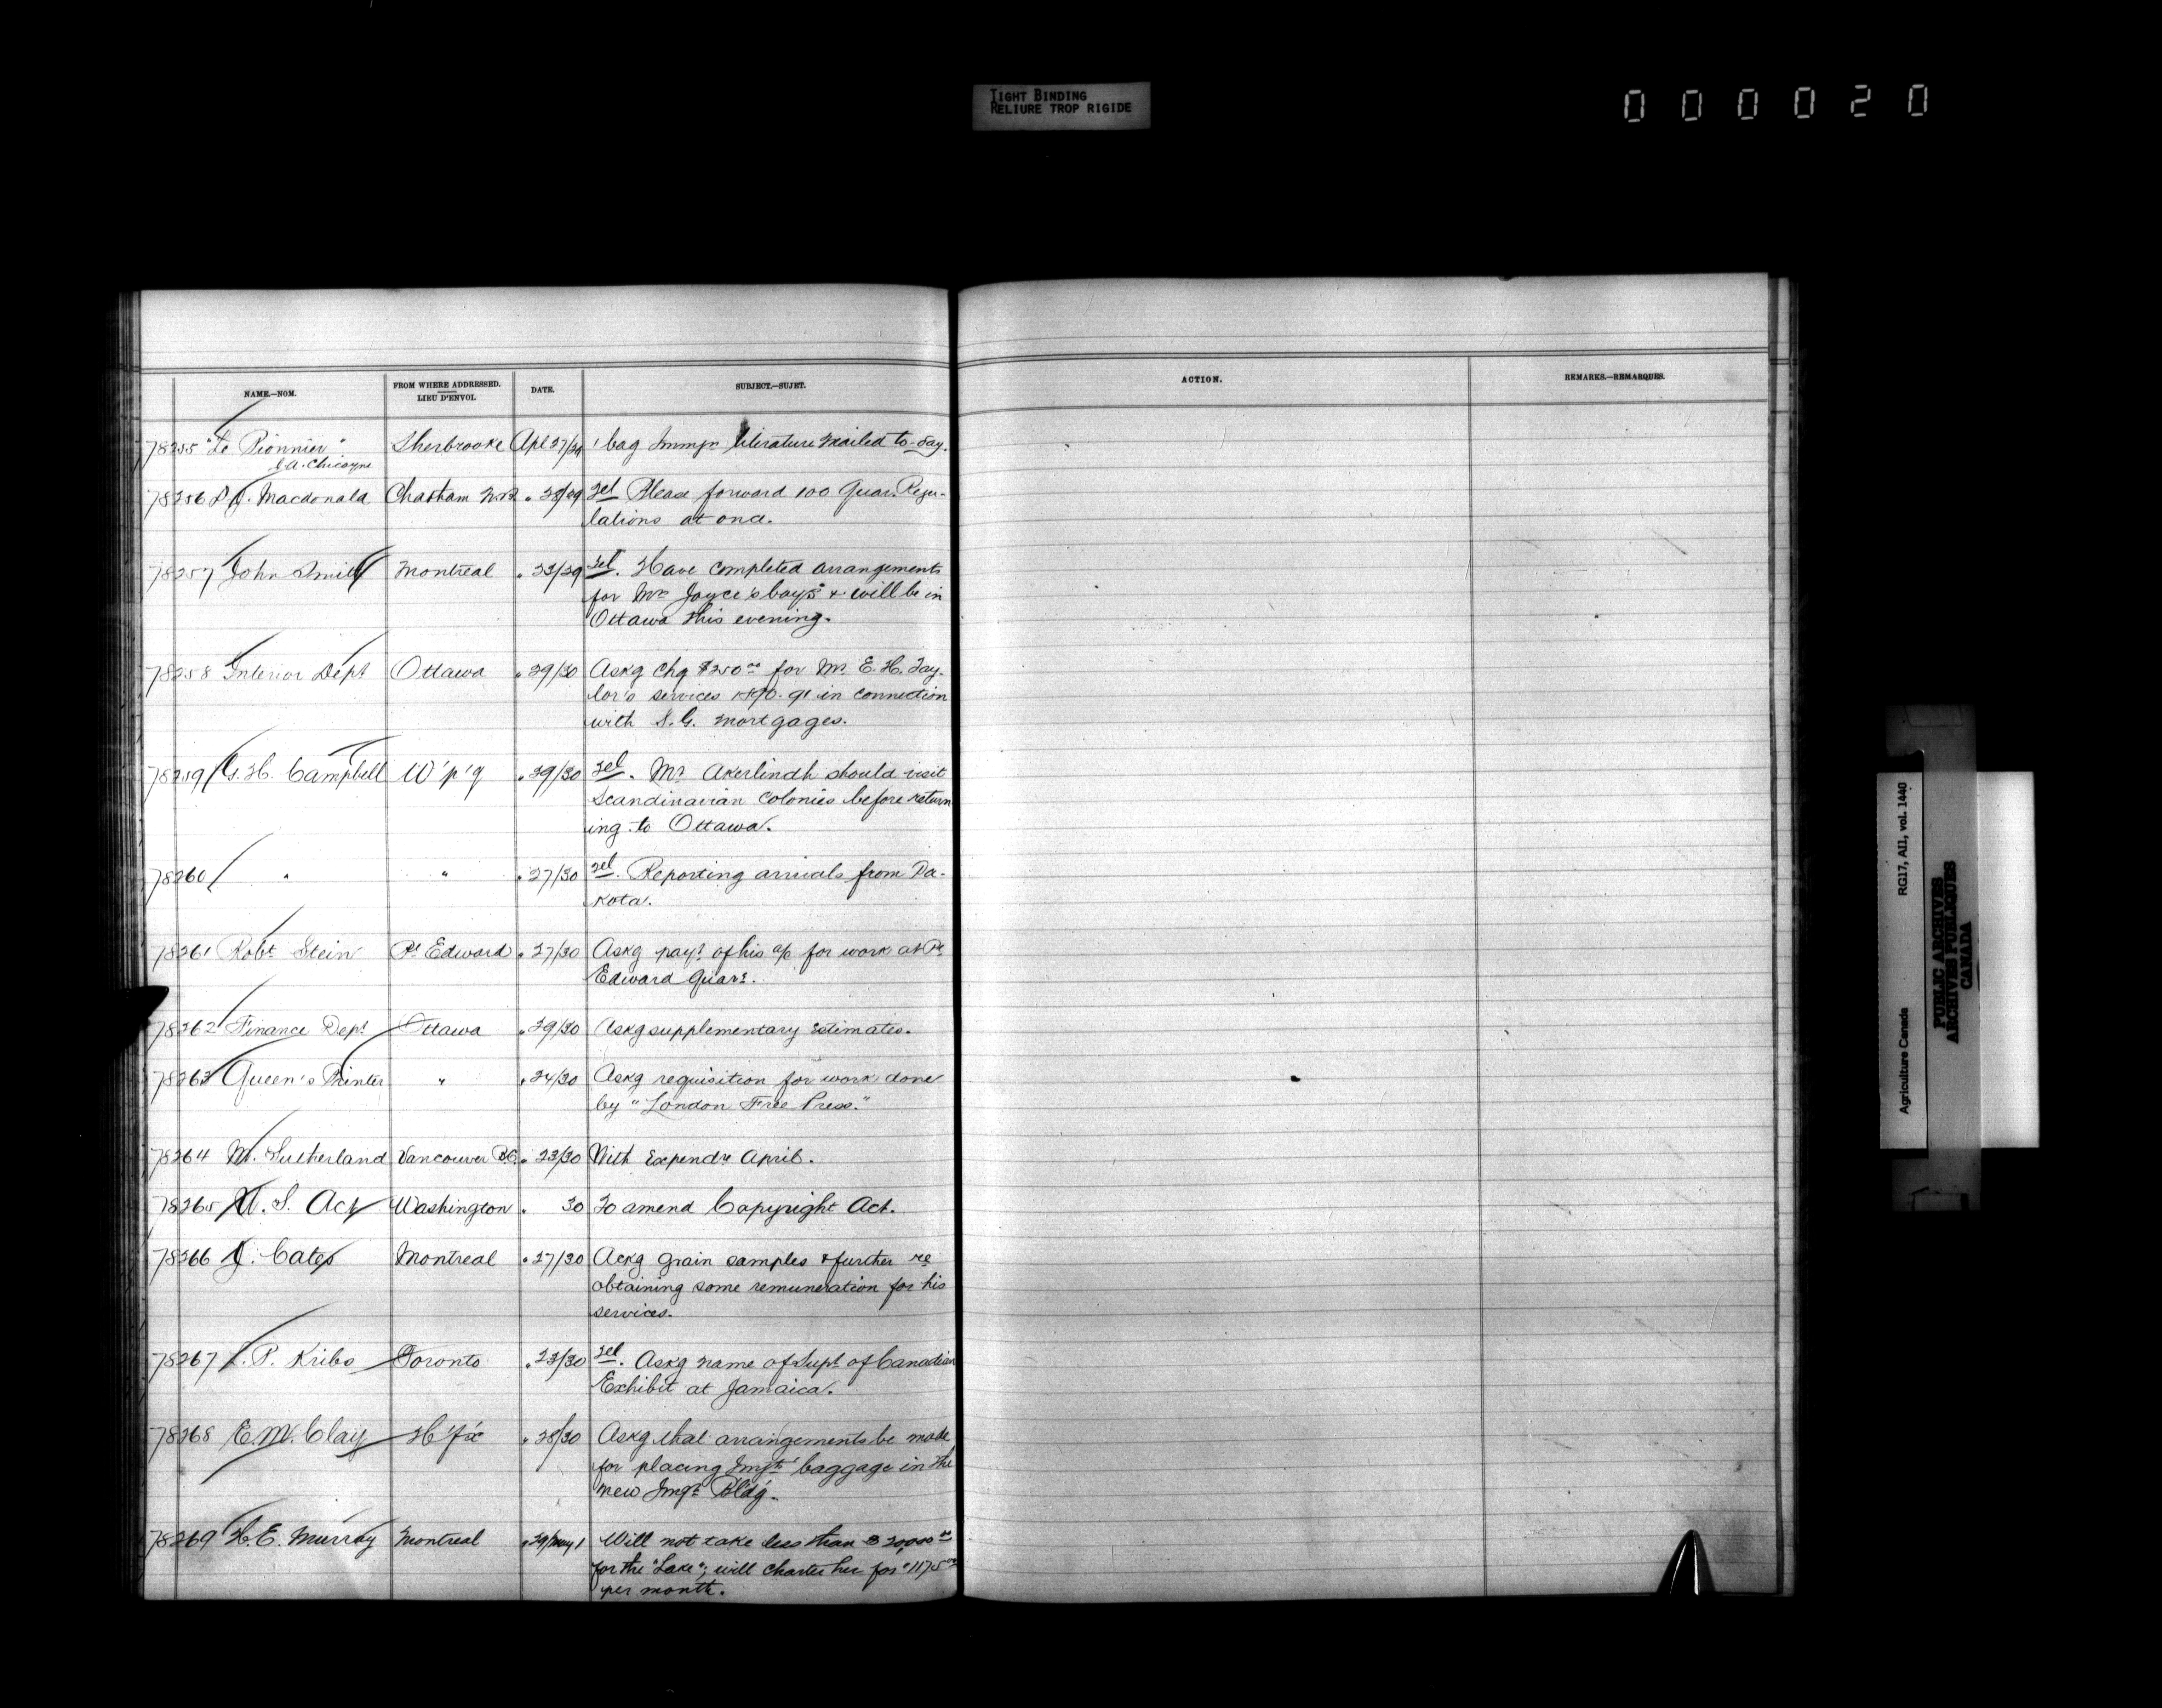 TIGHT BINDING
RELIURE TROP RIGIDE
000020
NAME.—NOM.
FROM WHERE ADDRESSED.
LIEU D'ENVOI.
DATE.
SUBJECT.—SUJET.
ACTION.
REMARKS.—REMARQUES.
78255 "Le Pionnier" Sherbrooke Apl 27/29 1 bag Immgn literature mailed to-day.
C.A. Chicoyne
78256 Macdonald Chatham N.B. " 28/29 Tel Please forward 100 Quar. Regu-
lations at once.
78257 John Smith Montreal " 23/29 Tel. Have completed arrangements
for Mrs Joyce's boys & will be in
Ottawa this evening.
78258 Interior Dept Ottawa " 29/30 Askg chq $250.00 for Mr. E. H. Tay-
lor's services 1890-91 in connection
with S.G. mortgages.
78259 G. H. Campbell W'p'g " 29/30 Tel. Mr Akerlindh should visit
Scandinavian Colonies before return
ing to Ottawa.
78260 " " " 27/30 Tel. Reporting arrivals from Da-
kota.
78261 Robt Stein Pt Edward " 27/30 Askg payt of his a/c for work at Pt
Edward Quarn.
78262 Finance Dept Ottawa " 29/30 Askg supplementary Estimates.
78263 Queen's Printer " " 24/30 Askg requisition for work done
by "London Free Press."
78264 M. Sutherland Vancouver B.C. " 23/30 With Expendre April.
78265 U. S. Act Washington " 30 To amend Copyright Act.
78266 J. Cates Montreal " 27/30 Ackg grain samples & further re
obtaining some remuneration for his
services.
78267 P. Kribs Toronto " 23/30 Tel. Askg name of Supt of Canadian
Exhibit at Jamaica.
78268 E. M. Clay H'f'x " 28/30 Askg that arrangements be made
for placing Imgts' baggage in the
new Imgn Bld'g.
78269 H. E. Murray Montreal " 29/May 1 Will not take less than $20,000.00
for the "Lake"; will charter her for $1175.00
per month.
Agriculture Canada RG17, AII, vol. 1440
PUBLIC ARCHIVES
ARCHIVES PUBLIQUES
CANADA